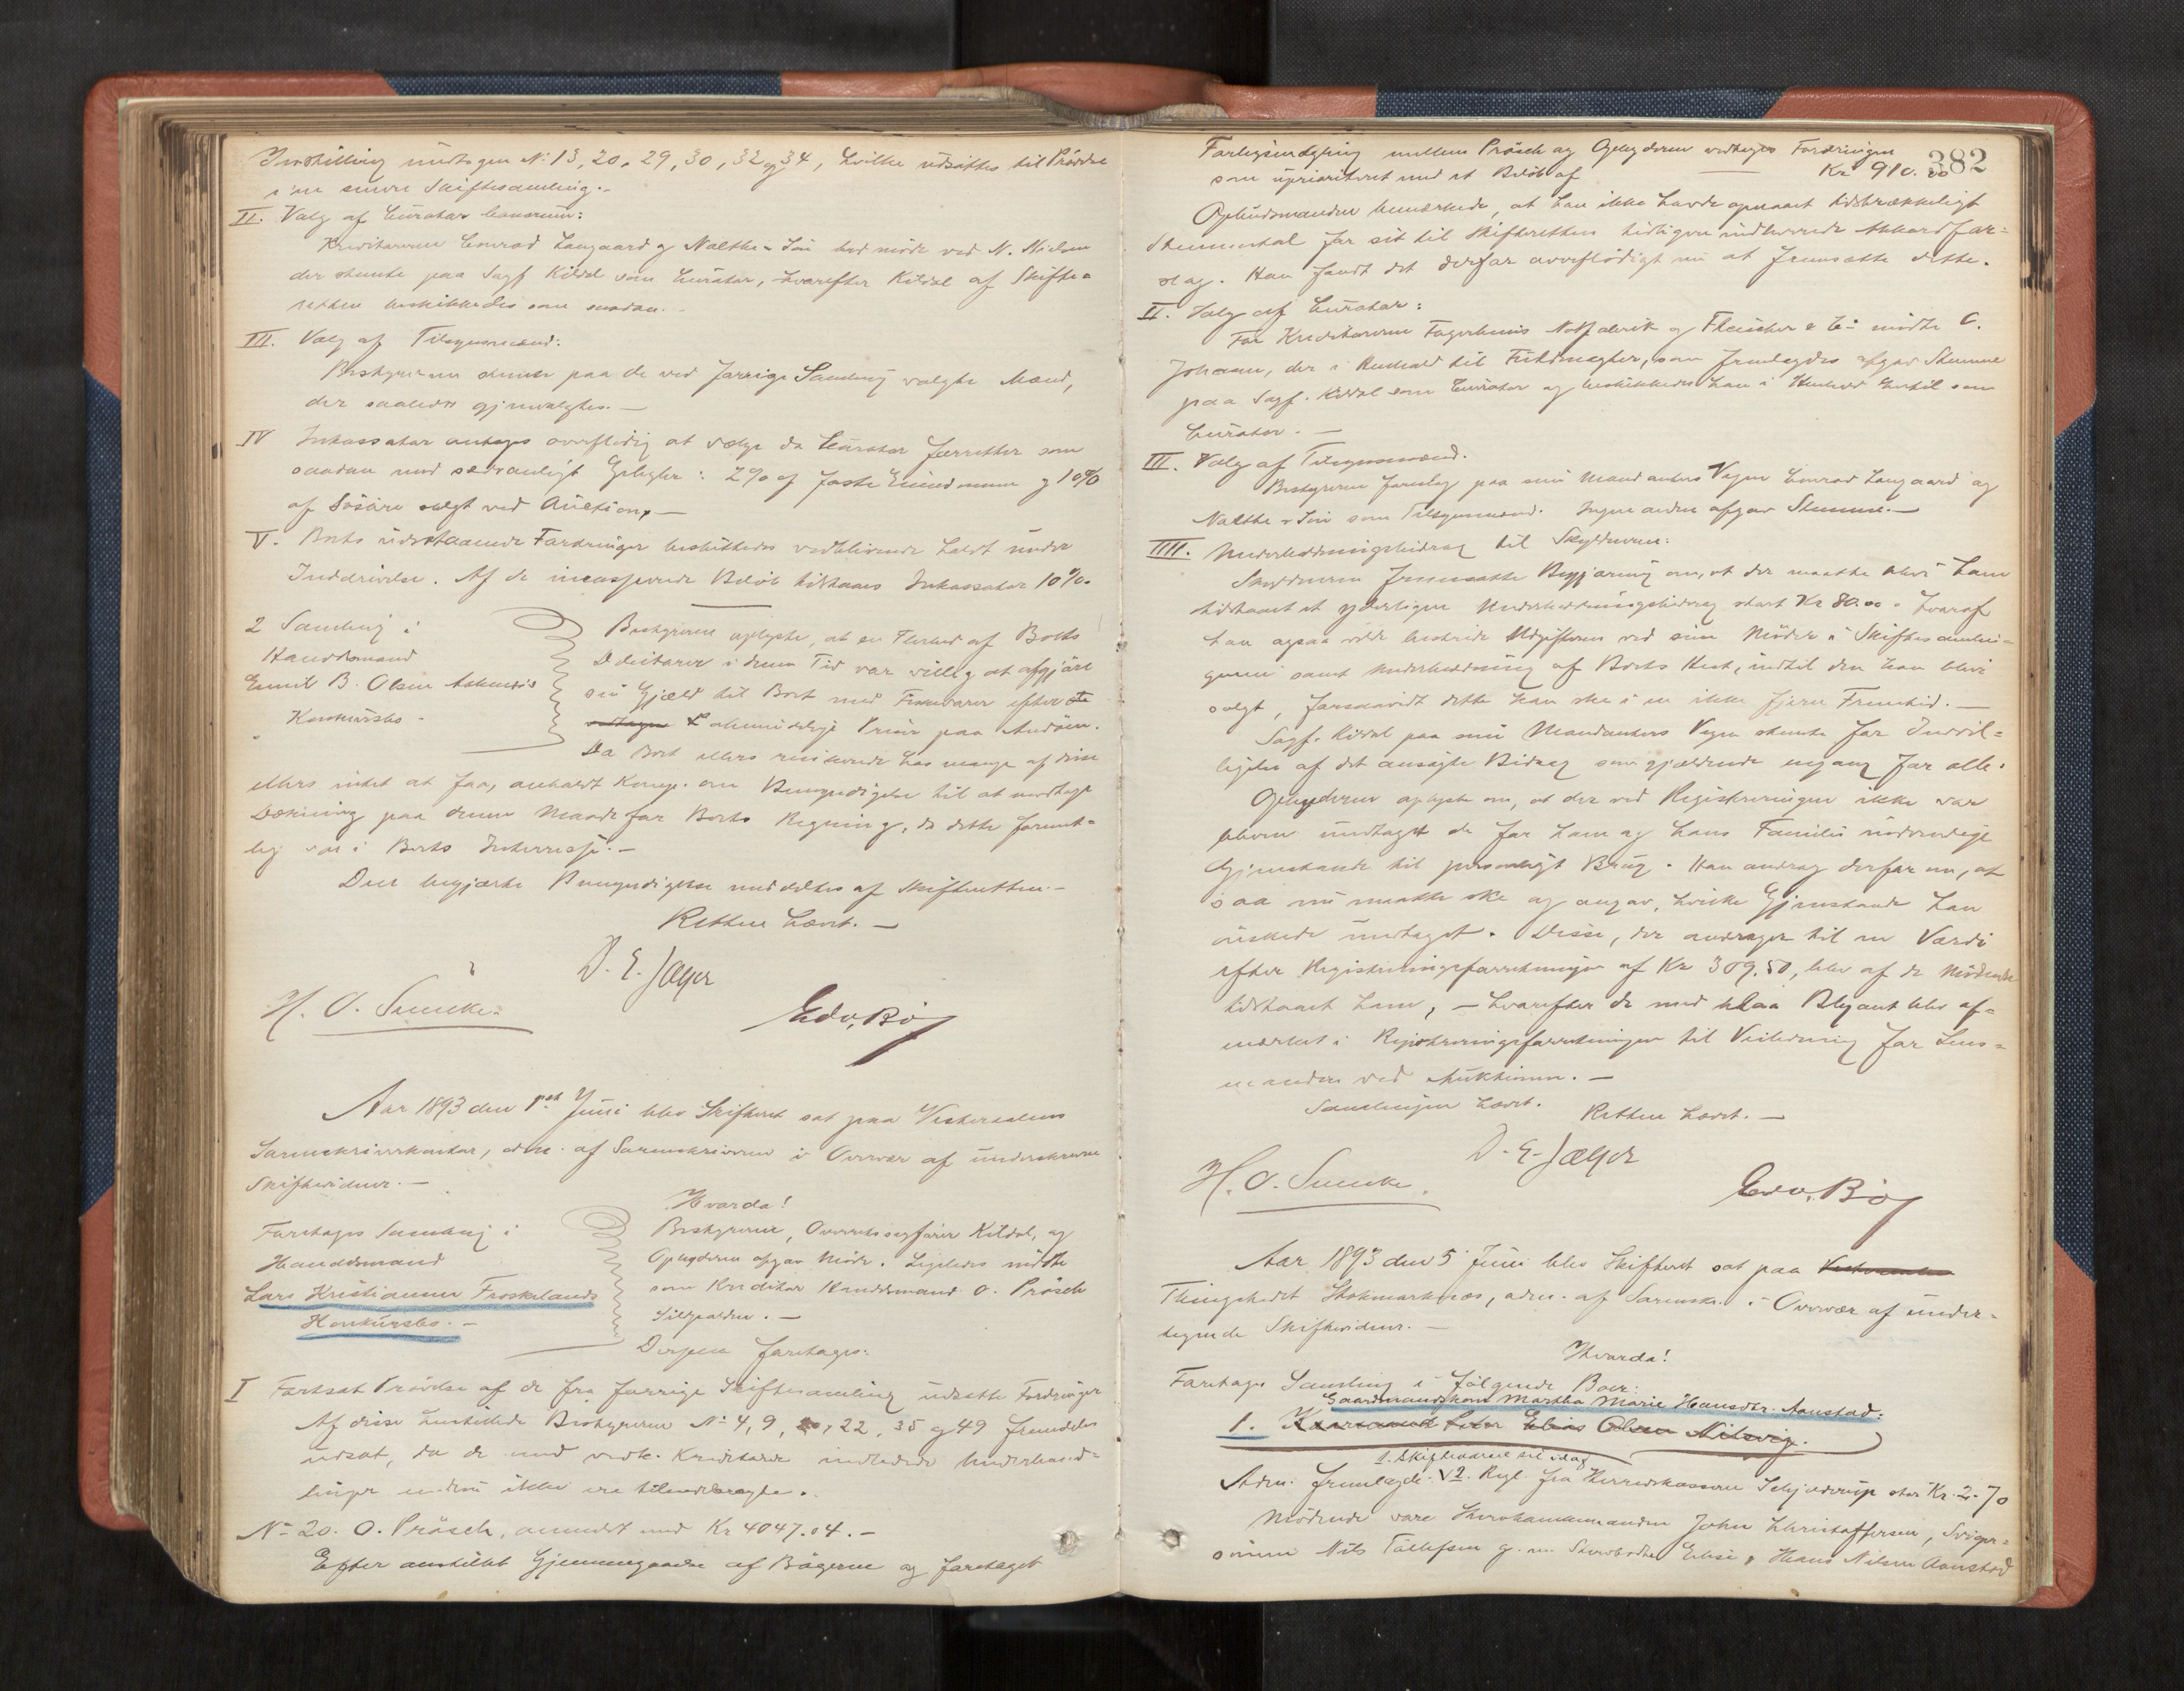 Indstilling undtagen No 13, 20, 29, 30, 32 og 34, hvilke udsættes til Prøvelse
i en senere Skiftesamling.-
II. Valg af Curator bonorum:
Kreditorerne Conrad Langaard og Naltke & Søn lod møde ved N. Nielsen
der stemte paa Sagf. Kildal som Curator, hvorefter Kildal af Skifte=
retten beskikkedes som saadan.-
III. Valg af Tilsynsmænd:
Bestyreren stemte paa de ved forrige Samling valgte Mænd,
der saaledes gjenvalgtes.-
IV Inkassator antages overflødig at vælge da Curator forretter som
saadan mod sædvanligt Gebyhr: 2% af faste Eiendomme og 10%
af Løsøre solgt ved Auction.-
V. Boets udestaaende Fordringer besluttedes vedblivende holdt under
Inddrivelse. Af de incasserede Beløb tilstaaes Inkassator 10%.
2 Samling i
Handelsmand
Emil B. Olsen
Konkursbo.-
Bestyreren oplyste, at en Flerhed af Boets
Debitorer i denne Tid var villig at afgjøre
sin Gjæld til Boet med Fiskevarer efter de
vedtagne almindelige Priser paa Andøen.
Da Boet ellers risikerede hos mange af disse
ellers intet at faa, anholdt Komp. om Bemyndigelse til at modtage
Dækning paa denne Maade for Boets Regning, da dette forment=
lig var i Boets Interesse.-
Den begjærte Bemyndigelse meddeltes af Skifteretten.-
Retten hævet.-
D. E. Jæger
H. O. Suncke
Edv. Bøj
Aar 1893 den 1ste Juni blev Skifteret sat paa Vesteraalens
Sorenskriverkontor, adm. af Sorenskriveren i Overvær af underskrevne
Skiftevidner.-
Hvorda!
Foretages Samling i
Handelsmand
Lars Kristiansen Froskelands
Konkursbo.-
Bestyreren, Overretssagfører Kildal, og
Opbyderen afgav Møde. Ligeledes mødte
som Kreditor Handelsmand O. Prösch
Silpolden.-
Derpaa foretages:
I Fortsat Prøvelse af de fra forrige Skiftesamling udsatte Fordringer
Af disse henstillede Bestyreren No 4, 9, 22, 35 og 49 fremdeles
udsat, da de med vedk. Kreditorer indledede Underhand=
linger endnu ikke ere tilendebragte.
No 20. O. Prösch, anmeldt med Kr 4047.04.-
Efter anstillet Gjennemgaaelse af Bøgerne og foretaget
382
Forligsmægling mellem Prösch og Opbyderen vedtoges Fordringen
som uprioriteret med et Beløb af — Kr 910.00
Opbudsmanden bemærkede, at han ikke havde opnaaet tilstrækkeligt
Stemmetal for sit til Skifteretten tidligere indleverede Akkordfor=
slag. Han fandt det derfor overflødigt nu at fremsætte dette.
II. Valg af Curator:
For Kreditorerne Fagerheims Notfabrik og Fleischer & Co mødte C.
Johansen, der i Henhold til Fuldmagter, som fremlagdes afgav Stemme
paa Sagf. Kildal som Curator og beskikkedes han i Henhold hertil som
Curator.-
III. Valg af Tilsynsmænd.
Bestyreren foreslog paa sine Mandanters Vegne Conrad Langaard og
Naltke & Søn som Tilsynsmænd. Ingen anden afgav Stemme.-
IIII. Underholdningsbidrag til Skyldneren:
Skyldneren fremsatte Begjæring om, at der maatte blive ham
tilstaaet et yderligere Underholdningsbidrag stort Kr 80.00. hvoraf
han ogsaa vilde bestride Udgifterne ved sine Møder i Skiftesamlin=
gerne samt Underholdning af Boets Hest, indtil den kan blive
solgt, forsaavidt dette kan ske i en ikke fjern Fremtid.-
Sagf. Kildal paa sine Mandanters Vegne stemte for Indvil=
gelse af det ansøgte Bidrag som gjældende engang for alle.
Opbyderen oplyste om, at der ved Registreringen ikke var
bleven undtaget de for ham og hans Familie nødvendige
Gjenstande til personligt Brug. Han androg derfor om, at
saa nu maatte ske og angav, hvilke Gjenstande han
ønskede undtaget. Disse, der androger til en Værdi
efter Registreringsforretningen af Kr 309.50, blev af de Mødende
tilstaaet ham, - hvorefter de med blaa Blyant blev af=
mærket i Registreringsforretningen til Veiledning for Lens=
manden ved Auktionen.-
Samlingen hævet. Retten hævet.-
D. E. Jæger
H. O. Suncke
Edv. Bøj
Aar 1893 den 5 Juni blev Skifteret sat paa
Thingstedet Stokmarknæs, adm. af Sorenskr. i Overvær af under=
tegnede Skiftevidner.-
Hvorda!
Foretages Samling i følgende Boer:
Gaardmandskone Martha Marie Hansdtr. Aanstad:
1. Elias Olsen
1. Skiftevarsel til idag
Adm. fremlagde 2. Regl. fra Herredskasserer Schjelderup stor Kr. 2.70
Mødende vare Enkemanden John Christoffersen, Sviger=
sønnen Nils Tollefsen g. m. Stervbodtr Elise, Hans Nilsen Aanstad